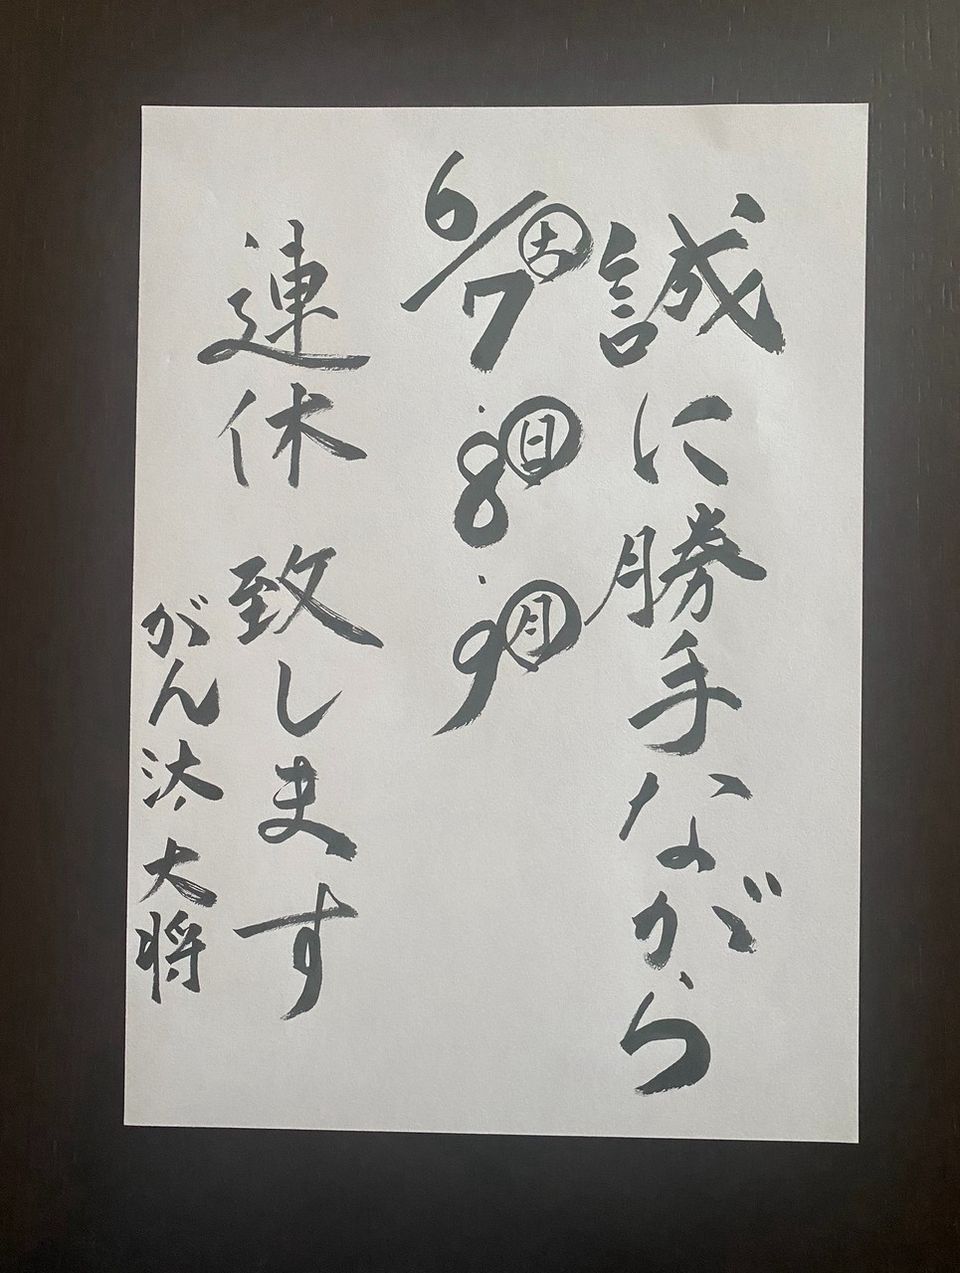 誠に勝手ながら
6/7㊏・8㊐・9㊊
連休致します
がん汰 大将